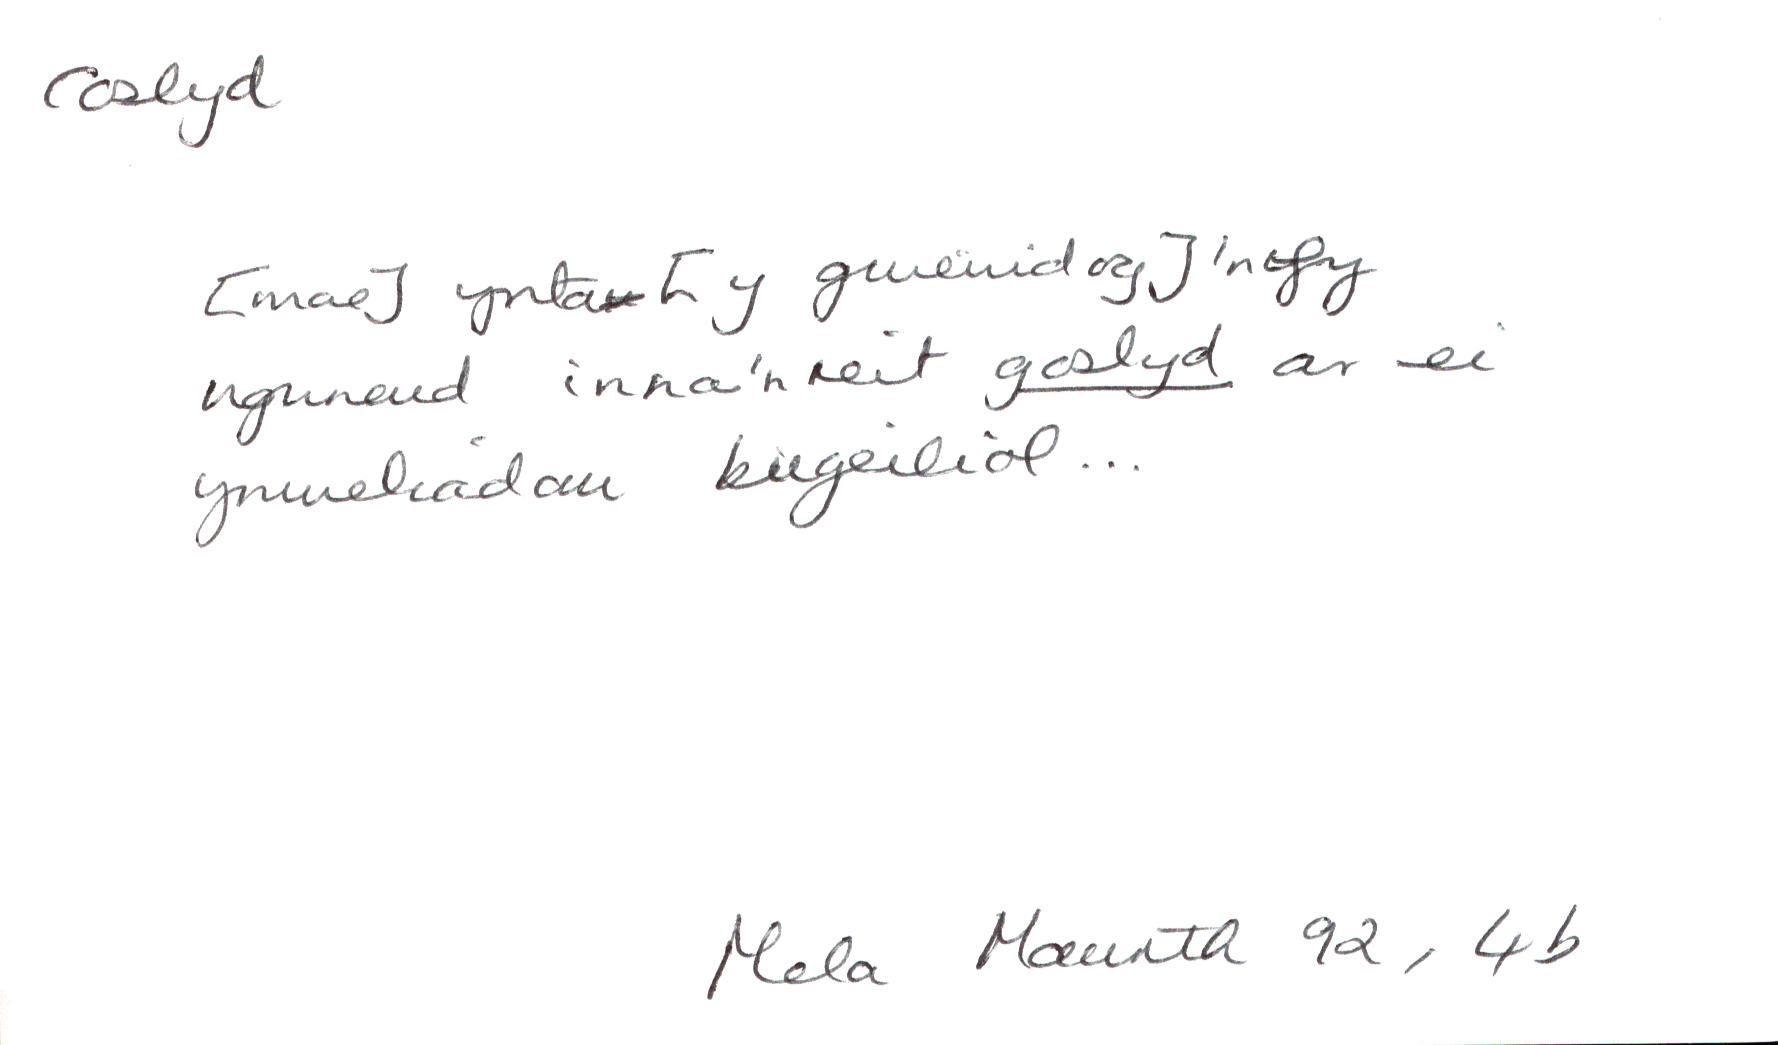 coslyd
[mae] yntau [y gweinidog]'n fy
ngwneud inna'n reit goslyd ar ei
ymweliadau bugeiliol...
Mela Mawrth 92, 4b